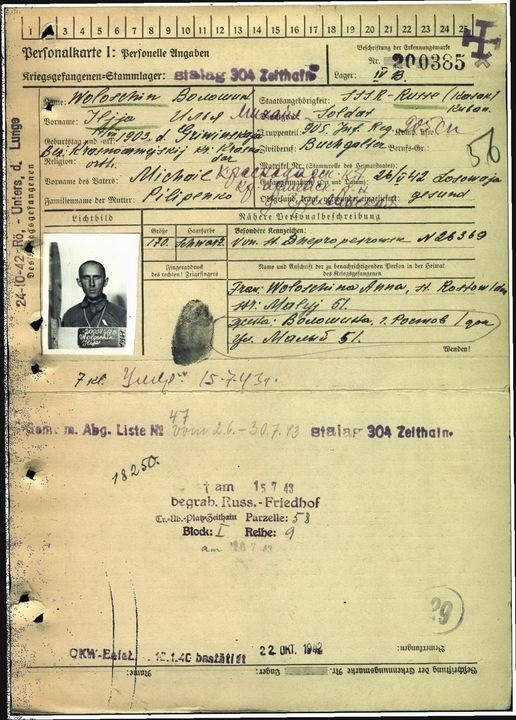 1 2 3 4 5 6 7 8 9 10 11 12 13 14 15 16 17 18 19 20 21 22 23 24 25
Personalkarte I: Personelle Angaben
Kriegsgefangenen-Stammlager: Stalag 304 Zeithain
Beschriftung der Erkennungsmarke
Nr. 200385
Lager: IV B
Name: Woloschin Волошин
Vorname: Ilja Илья
Geburtstag und -ort: 1903
Religion: orth.
Vorname des Vaters: Michail
Familienname der Mutter: Pilipenko
Staatsangehörigkeit: SSSR-Russe
Kuban
Dienstgrad: Soldat
Truppenteil: 905. Inf. Reg.
Zivilberuf: Buchgalter Berufs-Gr.:
Matrikel Nr. (Stammrolle des Heimatstaates)
26/VI 42 Losowaja
gesund
56
24-10-42-Rö.-Unters. d. Lunge
Des Kriegsgefangenen
Lichtbild
Nähere Personalbeschreibung
Größe Haarfarbe Besondere Kennzeichen:
170 Schwarz Von St. Dnepropetrowsk N 26369
Fingerabdruck
des rechten Zeigefingers
Name und Anschrift der zu benachrichtigenden Person in der Heimat
des Kriegsgefangenen
Frau: Woloschina Anna, st. Rostow/don
str. Malyj 51.
жена: Волошина, г. Ростов/дон
ул. Малый 51.
Wenden!
200385
Woloschin
Ilja
15.7.43г.
m. Abg. Liste № 47 vom 2.6.-30.7.43 Stalag 304 Zeithain
18250.
† am 15 7 43
begrab. Russ.-Friedhof
Tr.-Üb.-Platz Zeithain Parzelle: 58
Block: I Reihe: 9
am 16 7 43
29
OKW-Befehl bestätigt 22 OKT. 1942
Bemerkungen:
Beschriftung der Erkennungsmarke Nr.
Lager:
Name: